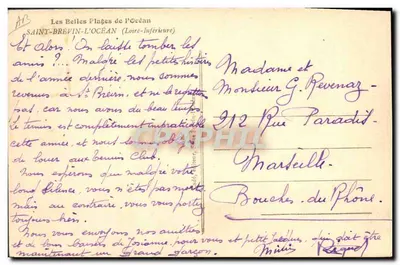 Les Belles Plages de l'Océan
SAINT-BREVIN-L'OCÉAN (Loire-Inférieure)
Et alors! On laisse tomber les
amis?... Malgré les petites histoires
de l'année dernière, nous sommes
revenus à St Brévin, et ne le regrettons
pas, car nous avons du beau temps.
Le tennis est complètement impraticable
cette année, et nous sommes obligés
de louer aux tennis Club.
Nous espérons que malgré votre
long silence, vous n'êtes pas morts
mais au contraire, vous vous portez
toujours bien.
Nous vous envoyons nos amitiés
et de bons baisers de Josiane pour vous et petit qui doit être
maintenant un grand garçon.
Madame et
Monsieur G. Revenaz
212 Rue Paradis
Marseille
Bouches-du-Rhône.